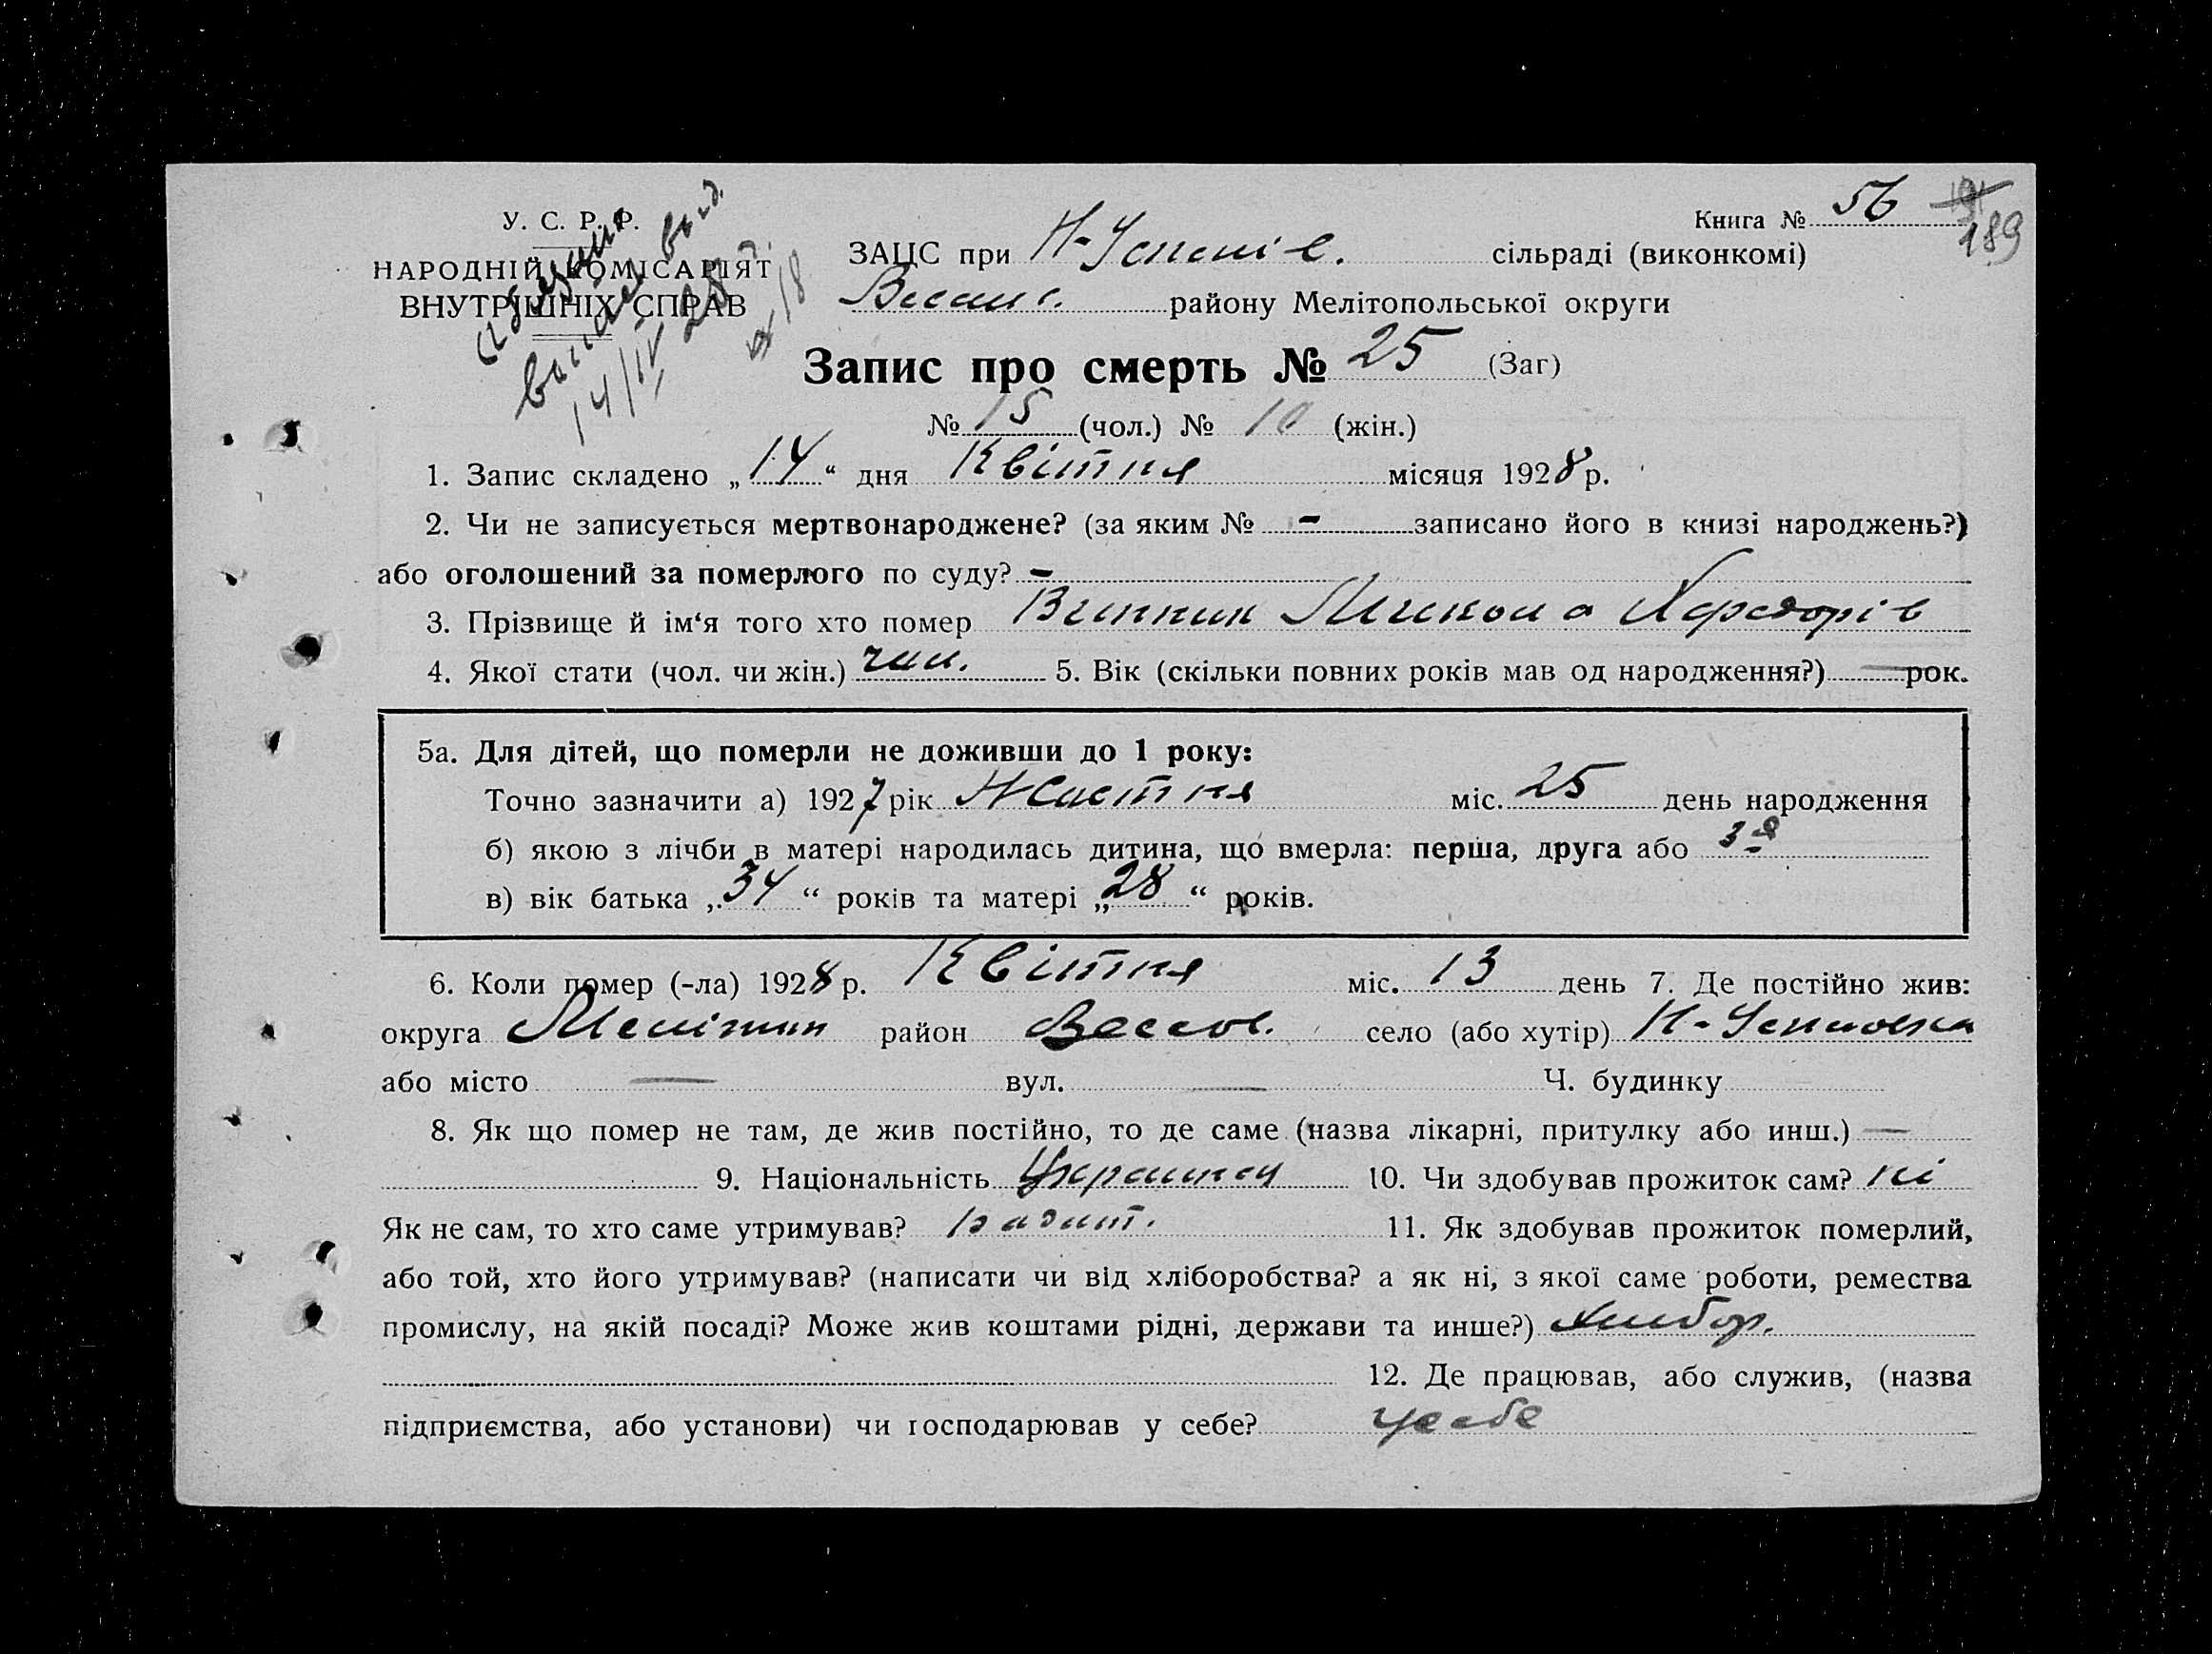 Книга № 56
189
У. С. Р. Р.
НАРОДНІЙ КОМІСАРІЯТ
ВНУТРІШНІХ СПРАВ
14/IV 28
ЗАЦС при Н-Успенів. сільраді (виконкомі)
району Мелітопольської округи
Запис про смерть № 25 (Заг)
№ 15 (чол.) № 10 (жін.)
1. Запис складено „14“ дня Квітня місяця 1928 р.
2. Чи не записується мертвонароджене? (за яким № - записано його в книзі народжень?)
або оголошений за померлого по суду? -
3. Прізвище й ім‘я того хто помер Микола
4. Якої стати (чол. чи жін.) чол. 5. Вік (скільки повних років мав од народження?) — рок.
5а. Для дітей, що померли не доживши до 1 року:
Точно зазначити а) 1927 рік Жовтня міс. 25 день народження
б) якою з лічби в матері народилась дитина, що вмерла: перша, друга або 3-я
в) вік батька „34“ років та матері „28“ років.
6. Коли помер (-ла) 1928 р. Квітня міс. 13 день 7. Де постійно жив:
округа Мелітоп район Весел. село (або хутір) Н-Успеновка
або місто — вул. — Ч. будинку
8. Як що помер не там, де жив постійно, то де саме (назва лікарні, притулку або инш.) —
9. Національність 10. Чи здобував прожиток сам? ні
Як не сам, то хто саме утримував? 11. Як здобував прожиток померлий,
або той, хто його утримував? (написати чи від хліборобства? а як ні, з якої саме роботи, ремества
промислу, на якій посаді? Може жив коштами рідні, держави та инше?) хлибор.
12. Де працював, або служив, (назва
підприємства, або установи) чи господарював у себе? у себе